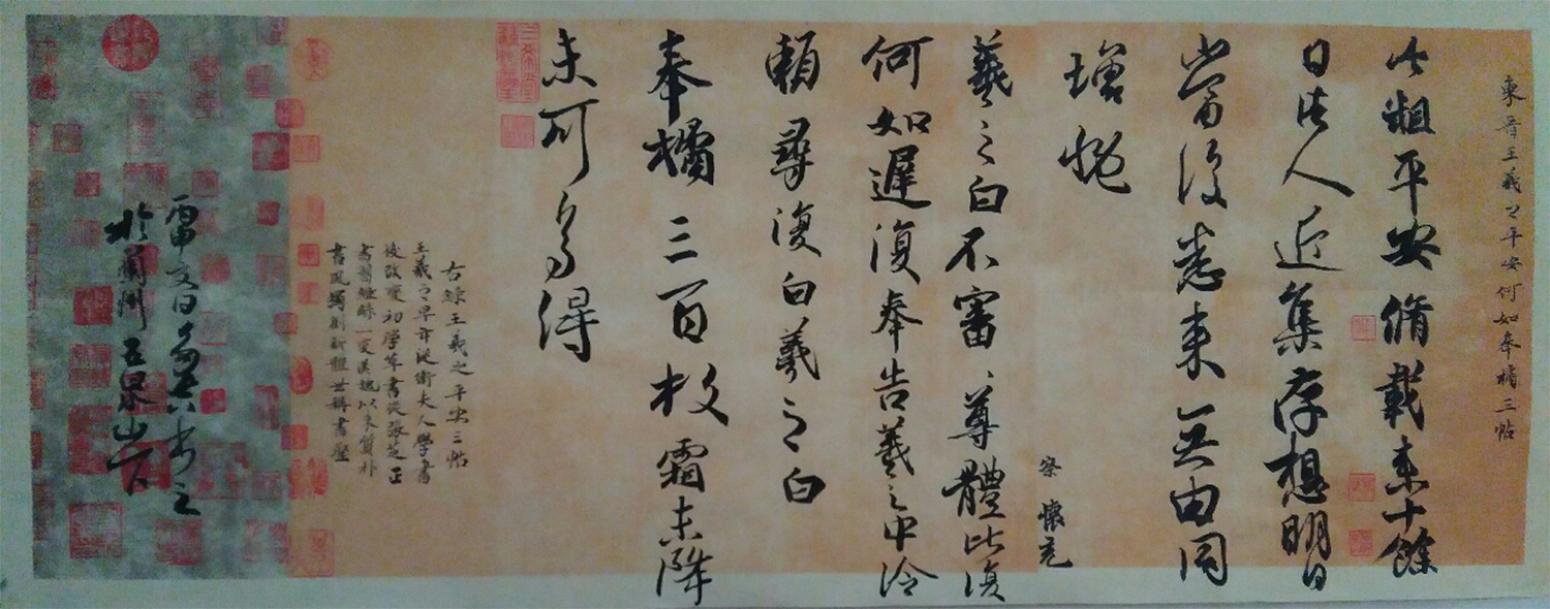 東晋王羲之平安何如奉橘三帖
此粗平安脩載来十餘
日諸人近集存想明日
當復悉来無由同
增慨
察 懷充
羲之白不審尊體比復
何如遲復奉告羲之中冷
賴尋復白羲之白
奉橘三百枚霜未降
未可多得
右錄王羲之平安三帖
王羲之早年從衛夫人學書
後改變初學草書從張芝正
書習鍾繇一變漢魏以來質朴
書風獨創新體世稱書聖
於蘭州五泉山下